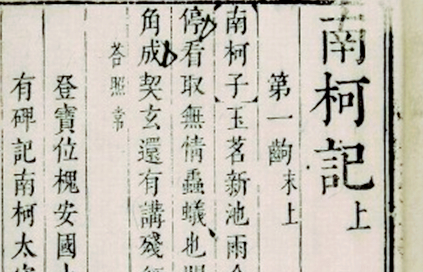 南柯記上
第一齣末上
南柯子】玉茗新池雨
停看取無情蟲蟻也
角成契玄還有講殘
答照常
登寶位槐安國
有碑記南柯太